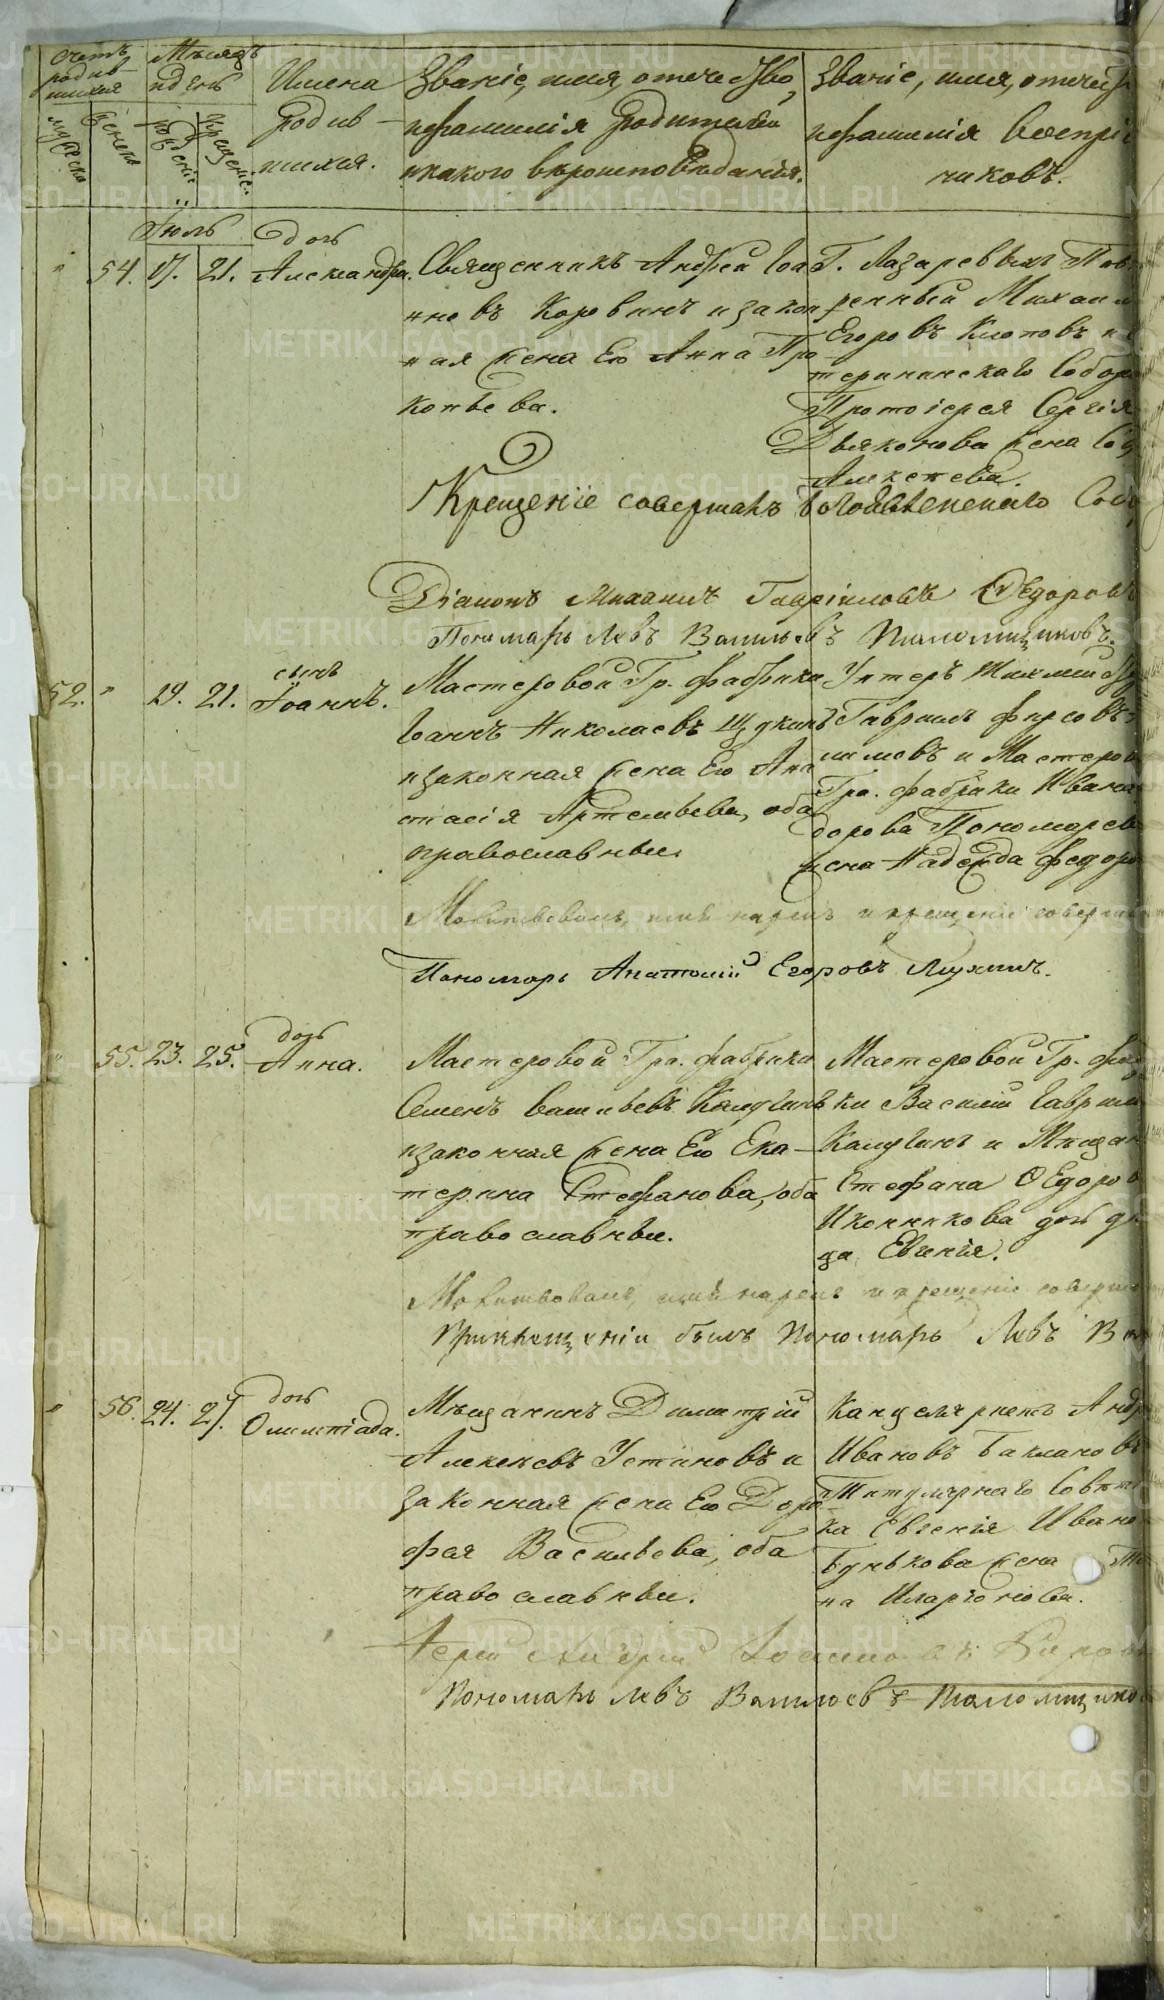 Счетъ родив-шихся
Мѣсяцъ и день
Имена родив-шихся.
Званіе, имя, отечество, и фамилія родителей и какого вѣроисповѣданія.
Званіе, имя, отечест и фамилія воспріе никовъ.
мужеска
женска
рожденіе
крещеніе.
Іюль
" 54. 17. 21.
дочь
Александра.
Священникъ Андрей Іоа
нновъ Коровинъ и закон
ная жена Его Анна Про
копьева.
Г. Лазаревыхъ Пов
ренный Михаил
Егоровъ Клоповъ и
терининскаго Собора
Протоіерея Сергія
Дьяконова жена Со
Алексѣева.
Крещеніе совершалъ Богоявленскаго Соб
Діаконъ Михаилъ Гавріиловъ Ѳедоровъ
Пономарь Левъ Васильевъ Топоминиковъ.
52. " 19. 21.
сынъ
Іоаннъ.
Мастеровой Гр. фабрики
Іоаннъ Николаевъ Щукинъ
и законная жена Его Ана
стасія Артемьева, оба
православные.
Унтеръ
Гавріилъ Фирсовъ
и Мастеров
Гра. фабрики Ивана
дорова Пономарев
жена Надежда Федоро
Молитвовалъ, имя нарекъ и крещеніе соверш
Пономарь Анатолій Егоровъ Лукинъ.
" 55. 23. 25.
дочь
Анна.
Мастеровой Гра. фабрики
Семенъ Васильевъ Калугинъ
и законная жена Его Ека-
терина Стефанова, оба
православные.
Мастеровой Гр. фаб
ки Василій Гаврил
Калугинъ и Мѣщан
Стефана Ѳедоро
Иконникова дочь дѣ
ца Евгенія.
Молитвовалъ, имя нарекъ и крещеніе соверш
При крещеніи былъ Пономарь Левъ В
" 56. 24. 27.
дочь
Олимпіада.
Мѣщанинъ Димитрій
Алексѣевъ Устиновъ и
законная жена Его Доро
фея Васильева, оба
православные.
Канцеляристъ Андр
Ивановъ Баклановъ
Титулярнаго Совѣтн
ка Евгенія Ивано
Бунькова жена
на Иларіонова.
Іерей Андрей Іоанновъ Коров
Пономарь Левъ Васильевъ
METRIKI.GASO-URAL.RU